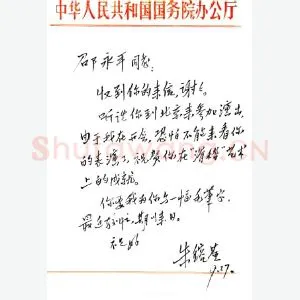 中华人民共和国国务院办公厅
邵永平同志:
收到你的来信,谢谢。
听说你到北京来参加演出,
由于我在开会,恐怕不能来看你
的表演了,祝贺你在滑稽艺术
上的成就。
你要我为你写一幅毛笔字,
最近太忙,期以来日。
祝好
朱镕基
9.27.
Shufawangcn